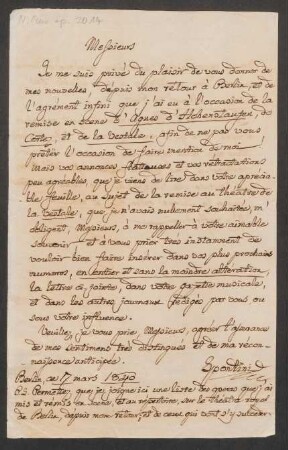 Messieurs
Je me suis privé du plaisir de vous donner de
mes nouvelles, depuis mon retour à Berlin, et de
l'agrément infini que j'ai eu à l'occasion de la
remise en scène d'Agnes d'Hohenstaufen, de
Cortez, et de la Vestale, afin de ne pas vous
prêter l'occasion de faire mention de moi!
Mais vos annonces flatteuses et vos rétractations
peu agréables, que je viens de lire dans votre appréci-
able feuille, au sujet de la remise au théâtre de
la Vestale, que je n'avais nullement souhaitée, m'o-
bligent, Messieurs, à me rappeller à votre aimable
souvenir et à vous prier très instamment de
vouloir bien faire insérer dans vos plus prochains
numeros, en entier et sans la moindre altération,
la lettre ci jointe, dans votre gazette musicale,
et dans les autres journaux rédigés par vous ou
sous votre influence.
Veuillez, je vous prie, Messieurs, agréer l'assurance
de mes sentimens très distingués et de ma recon-
naissance anticipée.
Spontini
Berlin ce 17 mars 1840
P.S. Permettez que je joigne ici une liste des opéras que j'ai
mis et remis en scène, et au répertoire, sur le théâtre royal
de Berlin, depuis mon retour, et de ceux qui vont s'y succéder